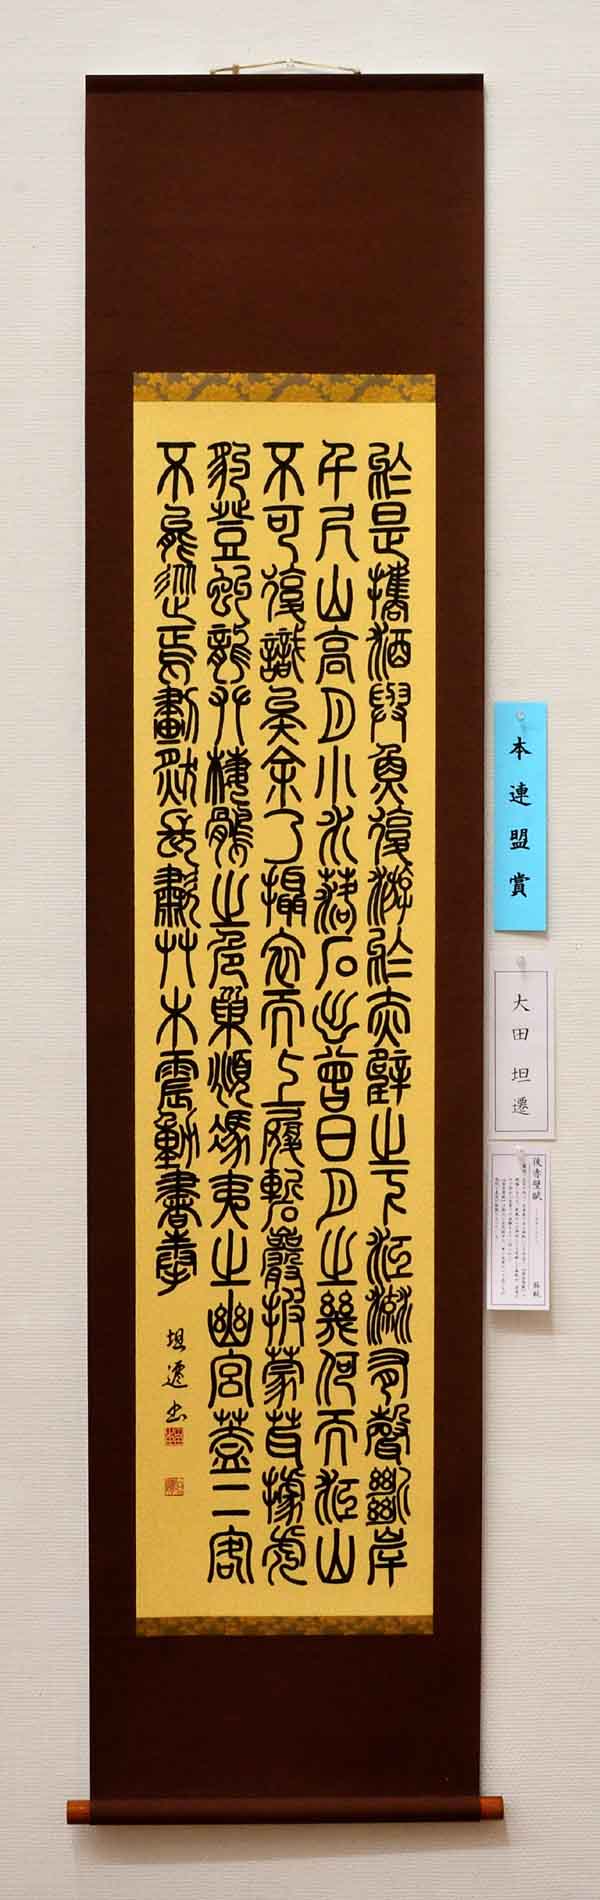 於是攜酒與魚復游於赤壁之下江流有聲斷岸
千尺山高月小水落石出曾日月之幾何而江山
不可復識矣余乃攝衣而上履巉巖披蒙茸據虎
豹登虯龍攀棲鶻之危巢俯馮夷之幽宮蓋二客
不能從焉劃然長嘯艸木震動
坦遷書
本連盟賞
大田坦遷
後赤壁賦
蘇軾